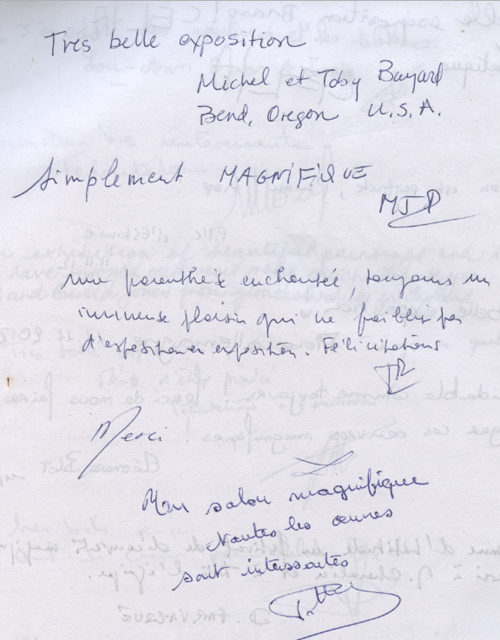 Tres belle exposition
Michel et Toby Bayard
Bend, Oregon U.S.A.
Simplement MAGNIFIQUE
MJD
une parenthèse enchantée, toujours un
immense plaisir qui ne faiblit pas
d'exposition en exposition. Félicitations
Merci
Mon salon magnifique
toutes les œuvres
sont interssantes